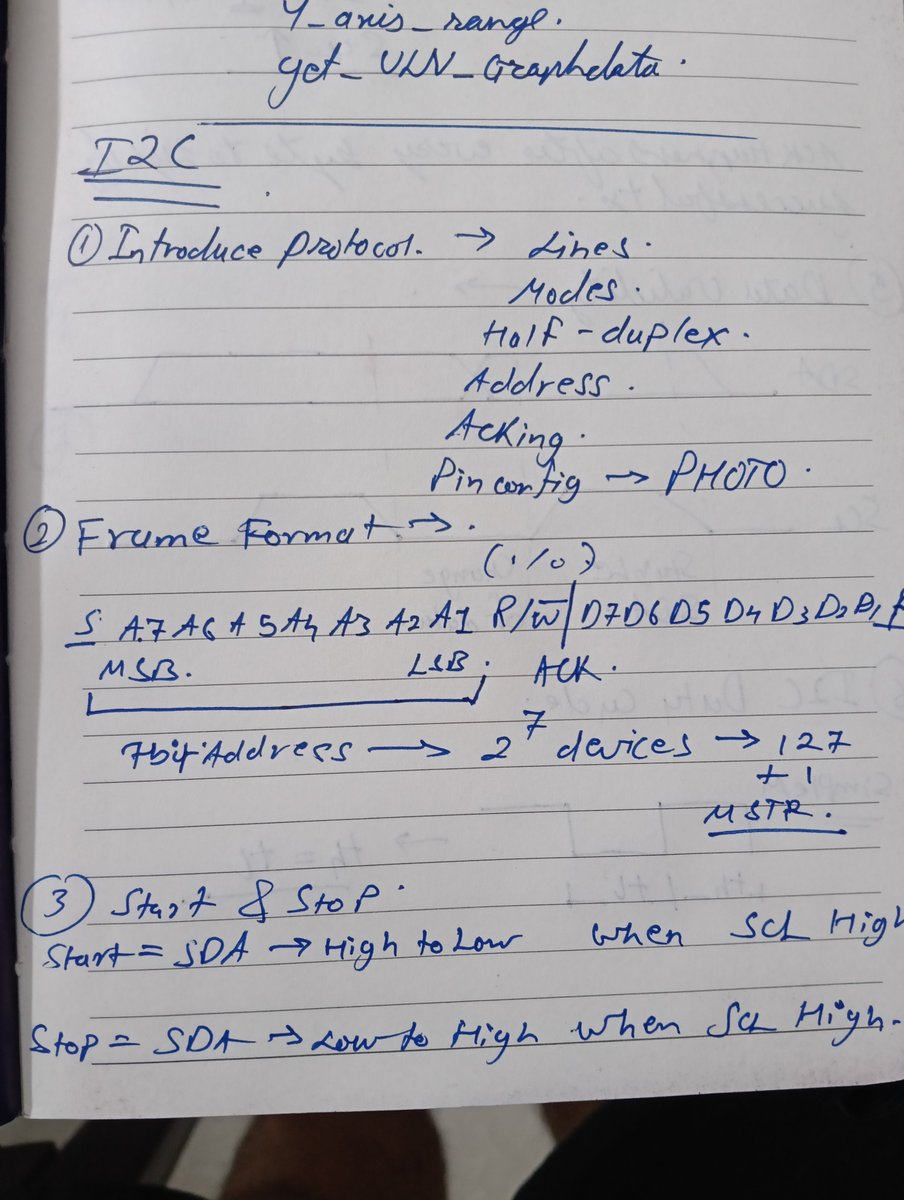 Y_axis_range.
get_VLN_Graphdata.
I2C
① Introduce protocol. → Lines.
Modes.
Half-duplex.
Address.
Acking.
Pin config → PHOTO.
② Frame Format →.
(1/0)
S A7 A6 A5 A4 A3 A2 A1 R/W̅ | D7 D6 D5 D4 D3 D2 D1
MSB. LSB. ACK.
7bit Address → 2⁷ devices → 127
+ 1
MSTR.
③ Start & Stop.
Start = SDA → High to Low when SCL High
Stop = SDA → Low to High when SCL High.